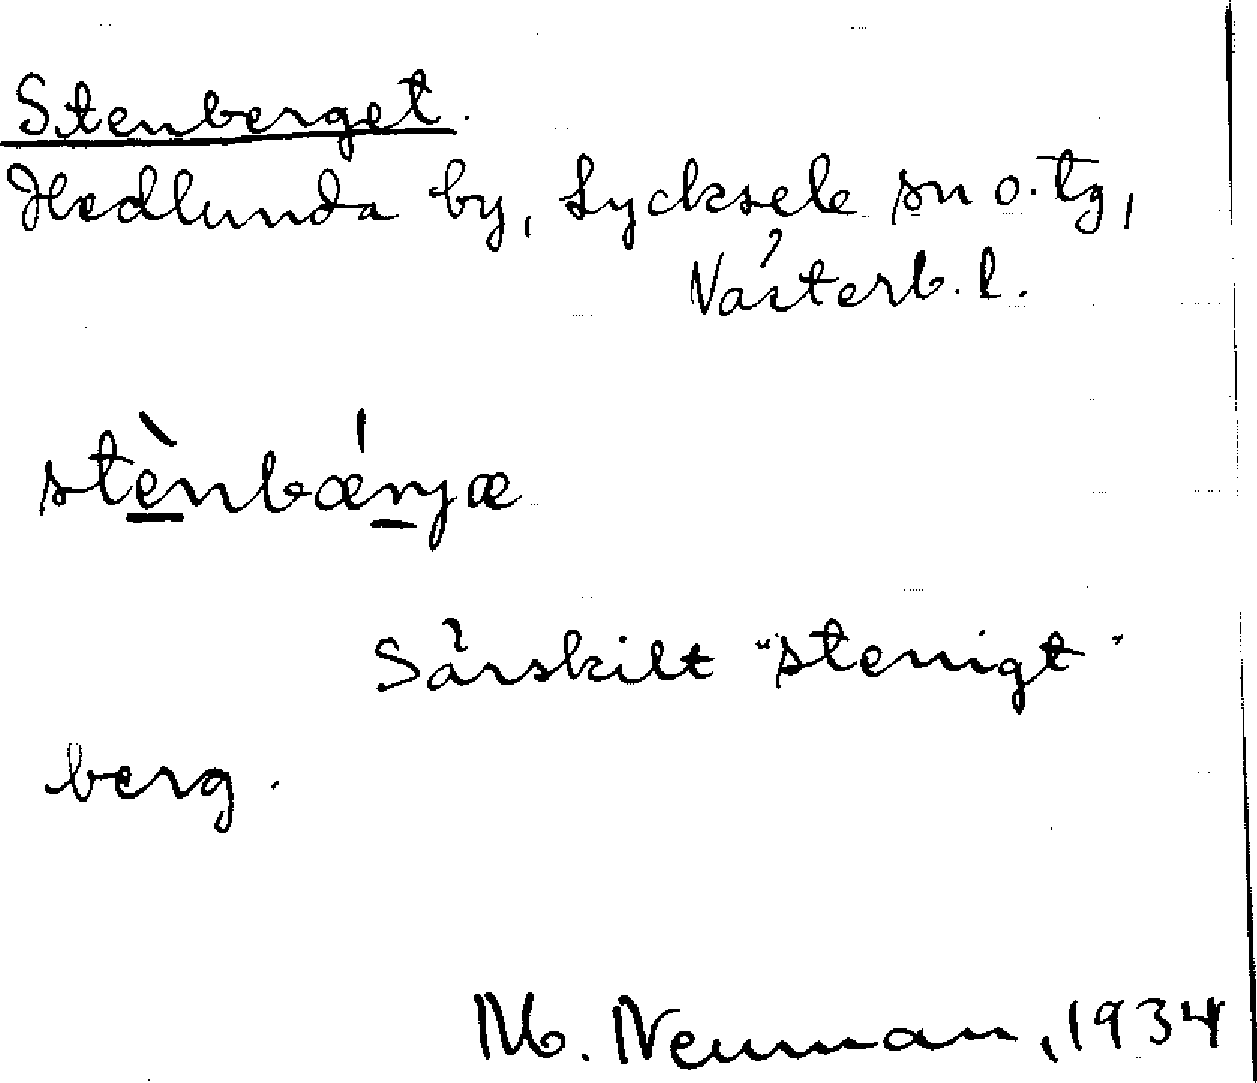 Stenberget.
Hedlunda by, Lycksele sn o. tg,
Västerb. l.
stènbǽrjæ
Särskilt "stenigt"
berg.
M. Neuman, 1934